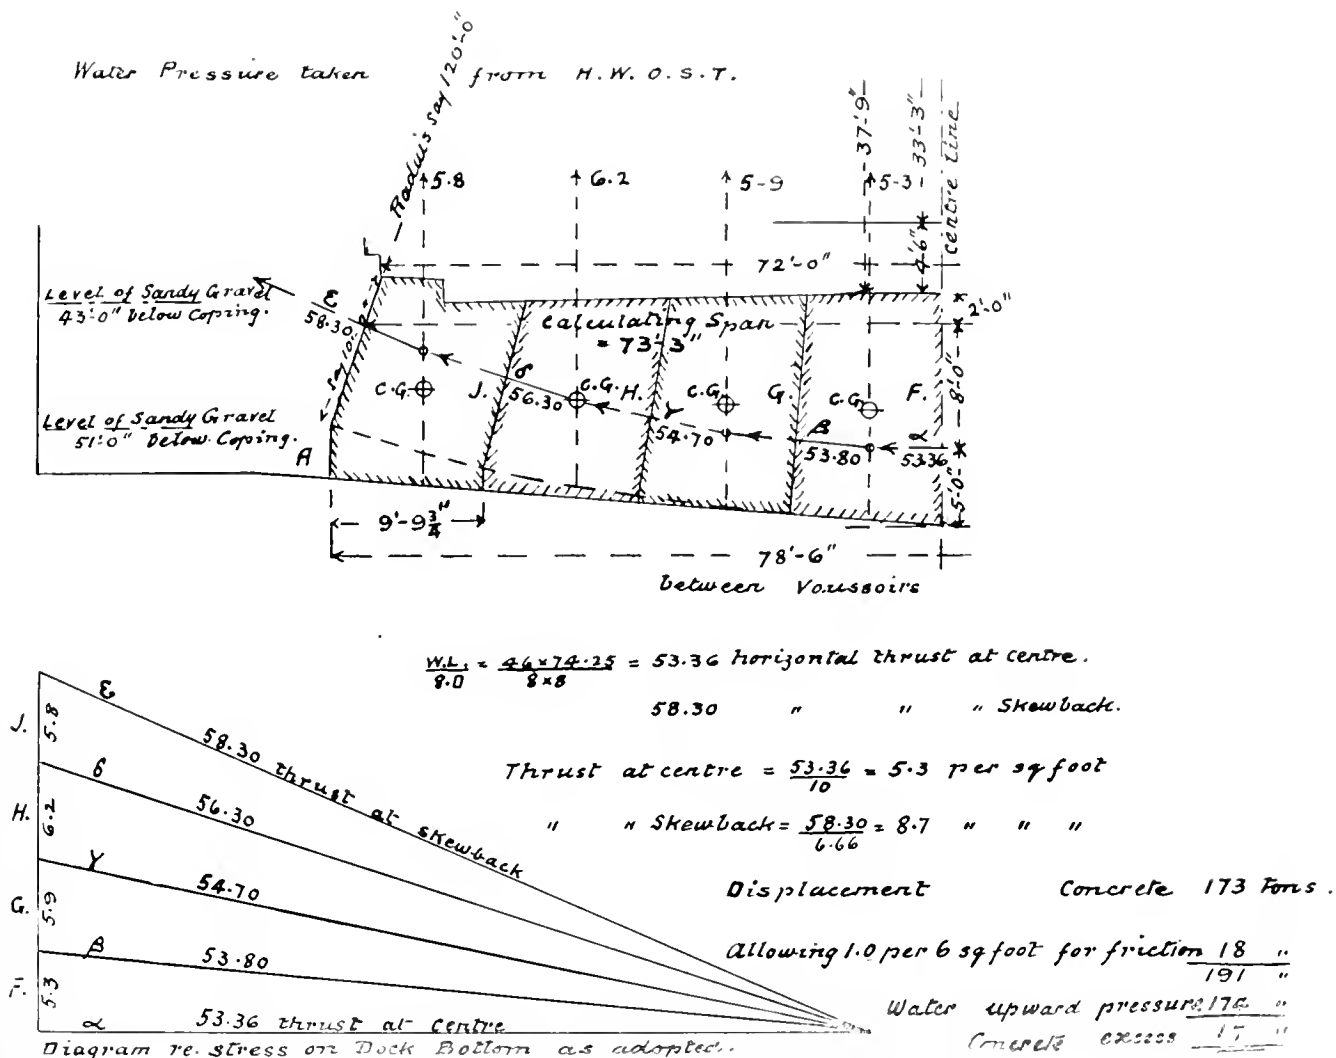 Water Pressure taken from H.W.O.S.T.
Radius say 120'-0"
37'-9"
33'-3"
Centre Line
5.8
6.2
5-9
5-3
4'6"
72'-0"
2'-0"
Level of Sandy Gravel
43'-0" below Coping.
ε
58.30
Calculating Span
= 73'-3"
say 10'
8'-0"
C.G.
J.
δ
56.30
C.G.
H.
C.G.
G.
C.G.
F.
γ
54.70
β
53.80
α
53.36
Level of Sandy Gravel
51'-0" below Coping.
A
5'-0"
9'-9 3/4"
78'-6"
between Voussoirs
W.L. / 8.D = 46 × 74.25 / 8 × 8 = 53.36 horizontal thrust at centre.
58.30 " " " Skewback.
Thrust at centre = 53.36 / 10 = 5.3 per sq foot
" " Skewback = 58.30 / 6.66 = 8.7 " " "
Displacement Concrete 173 Tons.
Allowing 1.0 per 6 sq foot for friction 18 "
191 "
Water upward pressure 174 "
Concrete excess 17 "
J.
5.8
ε
58.30 thrust at skewback
H.
6.2
δ
56.30
G.
5.9
γ
54.70
F.
5.3
β
53.80
α
53.36 thrust at centre
Diagram re. stress on Dock Bottom as adopted.